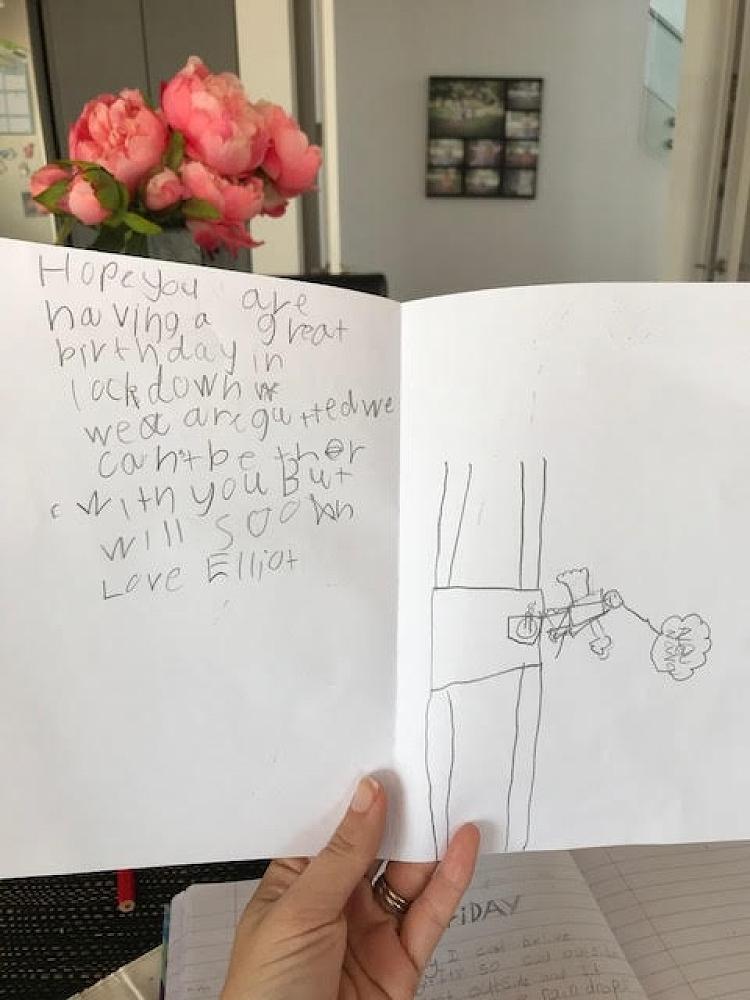 Hope you are
having a great
birthday in
lockdown
we are gutted we
can't be ther
with you But
will soown
Love Elliot
FiDAY
I can
so and outside
outside and it
rain drops